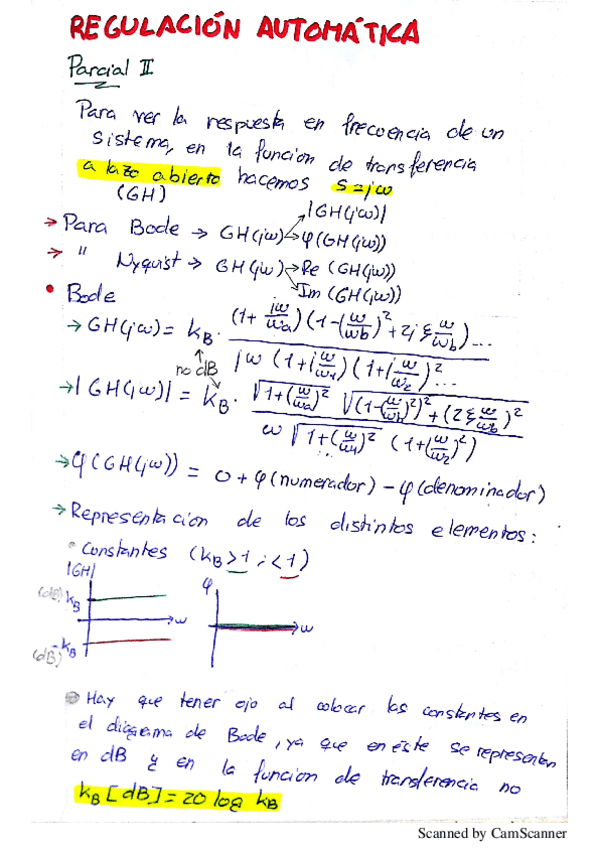 REGULACIÓN AUTOMÁTICA
Parcial II
Para ver la respuesta en frecuencia de un
sistema, en la funcion de transferencia
a lazo abierto hacemos s=jω
(GH)
|GH(jω)|
→ Para Bode → GH(jω) φ(GH(jω))
→ " Nyquist → GH(jω) → Re (GH(jω))
Im (GH(jω))
• Bode
→ GH(jω) = kB · (1+ jω/ωa)(1-(ω/ωb)²+2jξ ω/ωb)... / jω (1+j ω/ω1)(1+j ω/ω2)²...
no dB
→ |GH(jω)| = kB · √1+(ω/ωa)² √(1-(ω/ωb)²)²+(2ξ ω/ωb)² / ω √1+(ω/ω1)² (1+(ω/ω2)²)
...
→ φ(GH(jω)) = 0 + φ(numerador) - φ(denominador)
→ Representacion de los distintos elementos:
• Constantes (kB>1 ; <1)
|GH| φ
(dB) kB
ω ω
(dB) -kB
Hay que tener ojo al colocar las constantes en
el diagrama de Bode, ya que en este se representan
en dB y en la funcion de transferencia no
kB [dB] = 20 log kB
Scanned by CamScanner